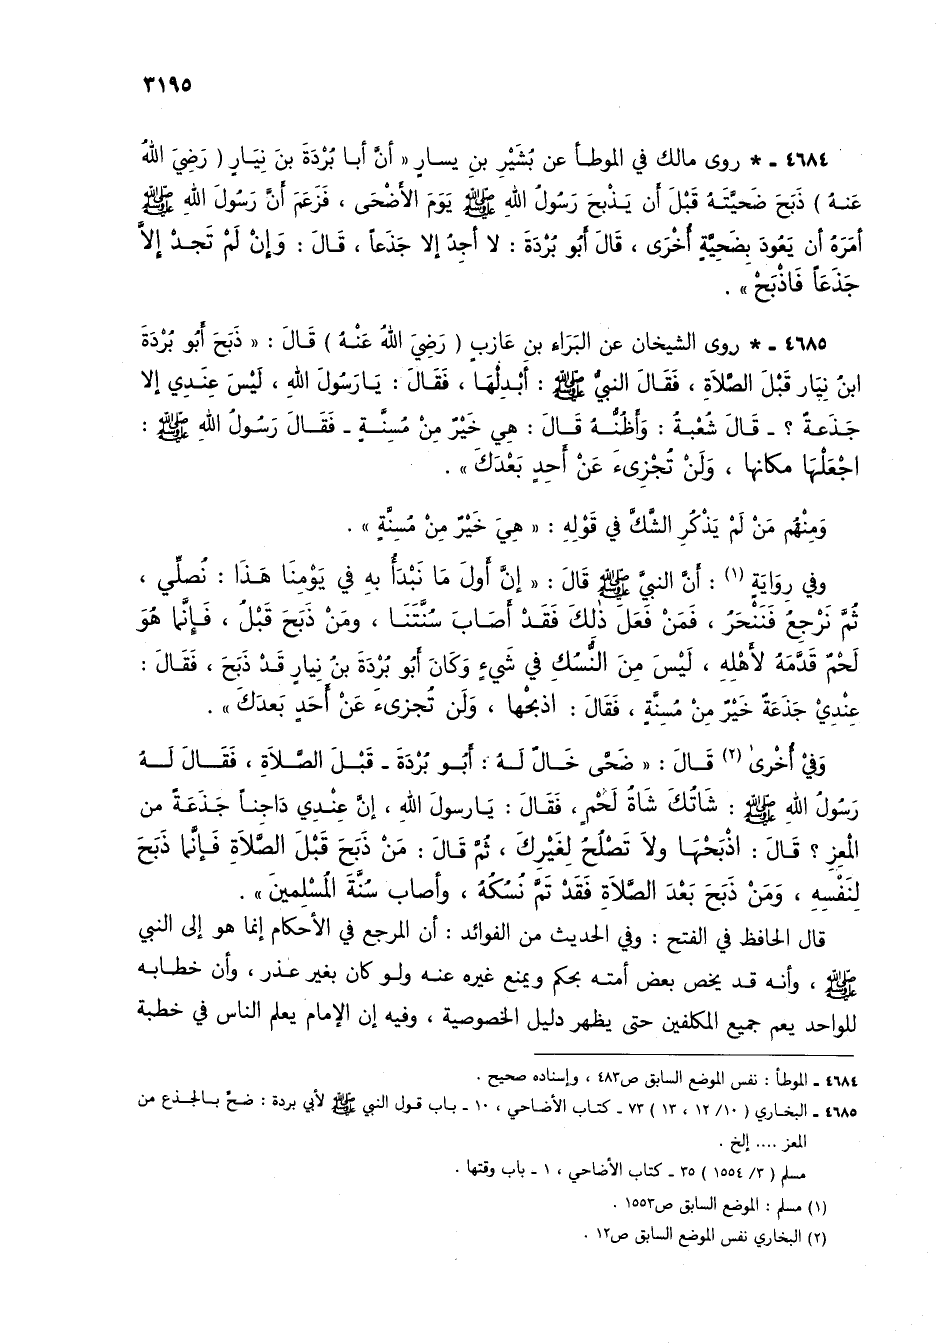 ٣١٩٥
٤٦٨٤ ـ * روى مالك في الموطأ عن بُشَيْرِ بنِ يسارٍ « أنَّ أبا بُرْدَةَ بنَ نِيَارٍ ( رَضِيَ اللهُ
عَنهُ ) ذَبَحَ ضَحِيَّتَهُ قَبْلَ أن يَذْبحَ رَسُولُ اللهِ ﷺ يَوَمَ الأضْحَى ، فَزَعَم أنَّ رَسُولَ اللهِ ﷺ
أمَرَهُ أن يَعُودَ بِضَحِيَّةٍ أُخْرَى ، قَالَ أَبُو بُرْدَةَ : لا أجدُ إلا جَذَعاً ، قَالَ : وَإنْ لَمْ تَجدْ إلاَّ
جَذَعَاً فَاذْبَحْ » .
٤٦٨٥ ـ * روى الشيخان عن البَرَاء بنِ عَازبٍ ( رَضِيَ اللهُ عَنْهُ ) قَالَ : « ذَبَحَ أَبُو بُرْدَةَ
ابنُ نِيَار قَبْلَ الصَّلاَةِ ، فَقَالَ النبيُّ ﷺ : أبْدِلْهَا ، فَقَالَ : يَارَسُولَ اللهِ ، لَيْسَ عِنَدِي إلا
جَذَعةٌ ؟ ـ قَالَ شُعْبةُ : وَأظُنُّهُ قَالَ : هِي خَيْرٌ مِنْ مُسِنَّةٍ ـ فَقَالَ رَسُولُ اللهِ ﷺ :
اجْعَلْهَا مكانها ، وَلَنْ تُجْزِىءَ عَنْ أَحدٍ بَعْدَكَ » .
وَمِنْهُم مَنْ لَمْ يَذْكُرِ الشَّكَّ في قَوْلِهِ : « هِيَ خَيْرٌ مِنْ مُسِنَّةٍ » .
وفي رِوَايَةٍ (١) : أنَّ النبيَّ ﷺ قَالَ : « إنَّ أولَ مَا نَبْدَأُ بِهِ فِي يَوْمِنَا هَذَا : نُصلِّي ،
ثُمَّ نَرْجِعُ فَنَنْحَرُ ، فَمَنْ فَعَلَ ذَلكَ فَقَدْ أصَابَ سُنَّتَنَا ، ومَنْ ذَبَحَ قَبْلُ ، فَإنَّما هُوَ
لَحْمٌ قَدَّمَهُ لأهْلِهِ ، لَيْسَ مِنَ النُّسُكِ في شَيءٍ وَكَانَ أبُو بُرْدَةَ بنُ نِيارٍ قَدْ ذَبَحَ ، فَقَالَ :
عِنْدِيْ جَذَعَةٌ خَيْرٌ مِنْ مُسِنَّةٍ ، فَقَالَ : اذبَحْها ، وَلَن تُجزىءَ عَنْ أَحَدٍ بَعدَكَ » .
وَفِيْ أُخْرىٰ (٢) قَالَ : « ضَحَّى خَالٌ لَهُ : أَبُو بُرْدَةَ ـ قَبْلَ الصَّلاَةِ ، فَقَالَ لَهُ
رَسُولُ اللهِ ﷺ : شَاتُكَ شَاةُ لَحْمٍ ، فَقَالَ : يَارسولَ اللهِ ، إنَّ عِنْدي دَاجناً جَذَعَةً من
المْعزِ ؟ قَالَ : اذْبَحْهَا ولاَ تَصْلُحُ لِغَيْرِكَ ، ثُمَّ قَالَ : مَنْ ذَبَحَ قَبْلَ الصَّلاَةِ فَإنَّما ذَبَحَ
لِنَفْسِهِ ، وَمَنْ ذَبَحَ بَعْدَ الصَّلاَةِ فَقَدْ تَمَّ نُسُكُهُ ، وأصاب سُنَّةَ الْمُسْلِمينَ » .
قال الحافظ في الفتح : وفي الحديث من الفوائد : أن المرجع في الأحكام إنما هو إلى النبي
ﷺ ، وأنه قد يخص بعض أمته بحكم ويمنع غيره عنه ولو كان بغير عذر ، وأن خطابه
للواحد يعم جميع المكلفين حتى يظهر دليل الخصوصية ، وفيه إن الإمام يعلم الناس في خطبة
٤٦٨٤ ـ الموطأ : نفس الموضع السابق ص٤٨٣ ، وإسناده صحيح .
٤٦٨٥ ـ البخاري ( ١٠/ ١٢ ، ١٣ ) ٧٣ ـ كتاب الأضاحي ، ١٠ ـ باب قول النبي ﷺ لأبي بردة : ضحِّ بالجذع من
المعز .... إلخ .
مسلم ( ٣/ ١٥٥٤ ) ٣٥ ـ كتاب الأضاحي ، ١ ـ باب وقتها .
(١) مسلم : الموضع السابق ص١٥٥٣ .
(٢) البخاري نفس الموضع السابق ص١٢ .